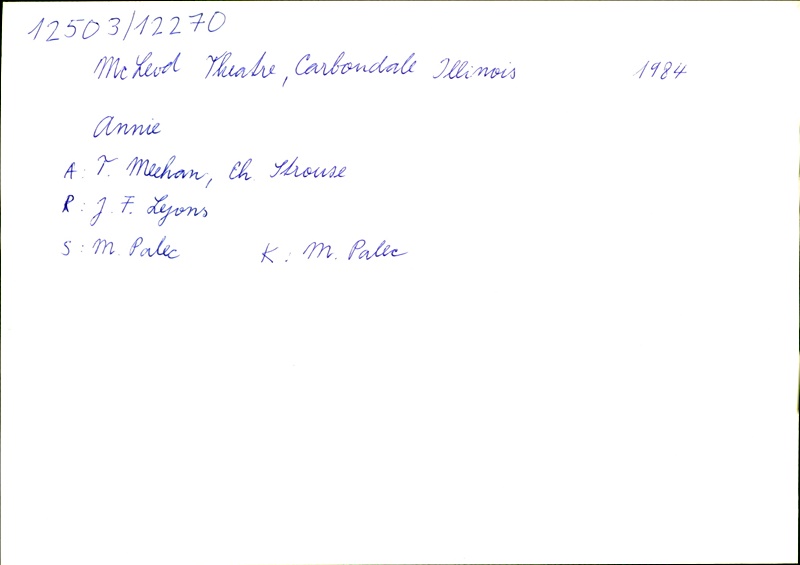 12503/12270
McLeod Theatre, Carbondale Illinois 1984
Annie
A: T. Meehan, Ch Strouse
R: J. F. Lyons
S: M. Palec K: M. Palec